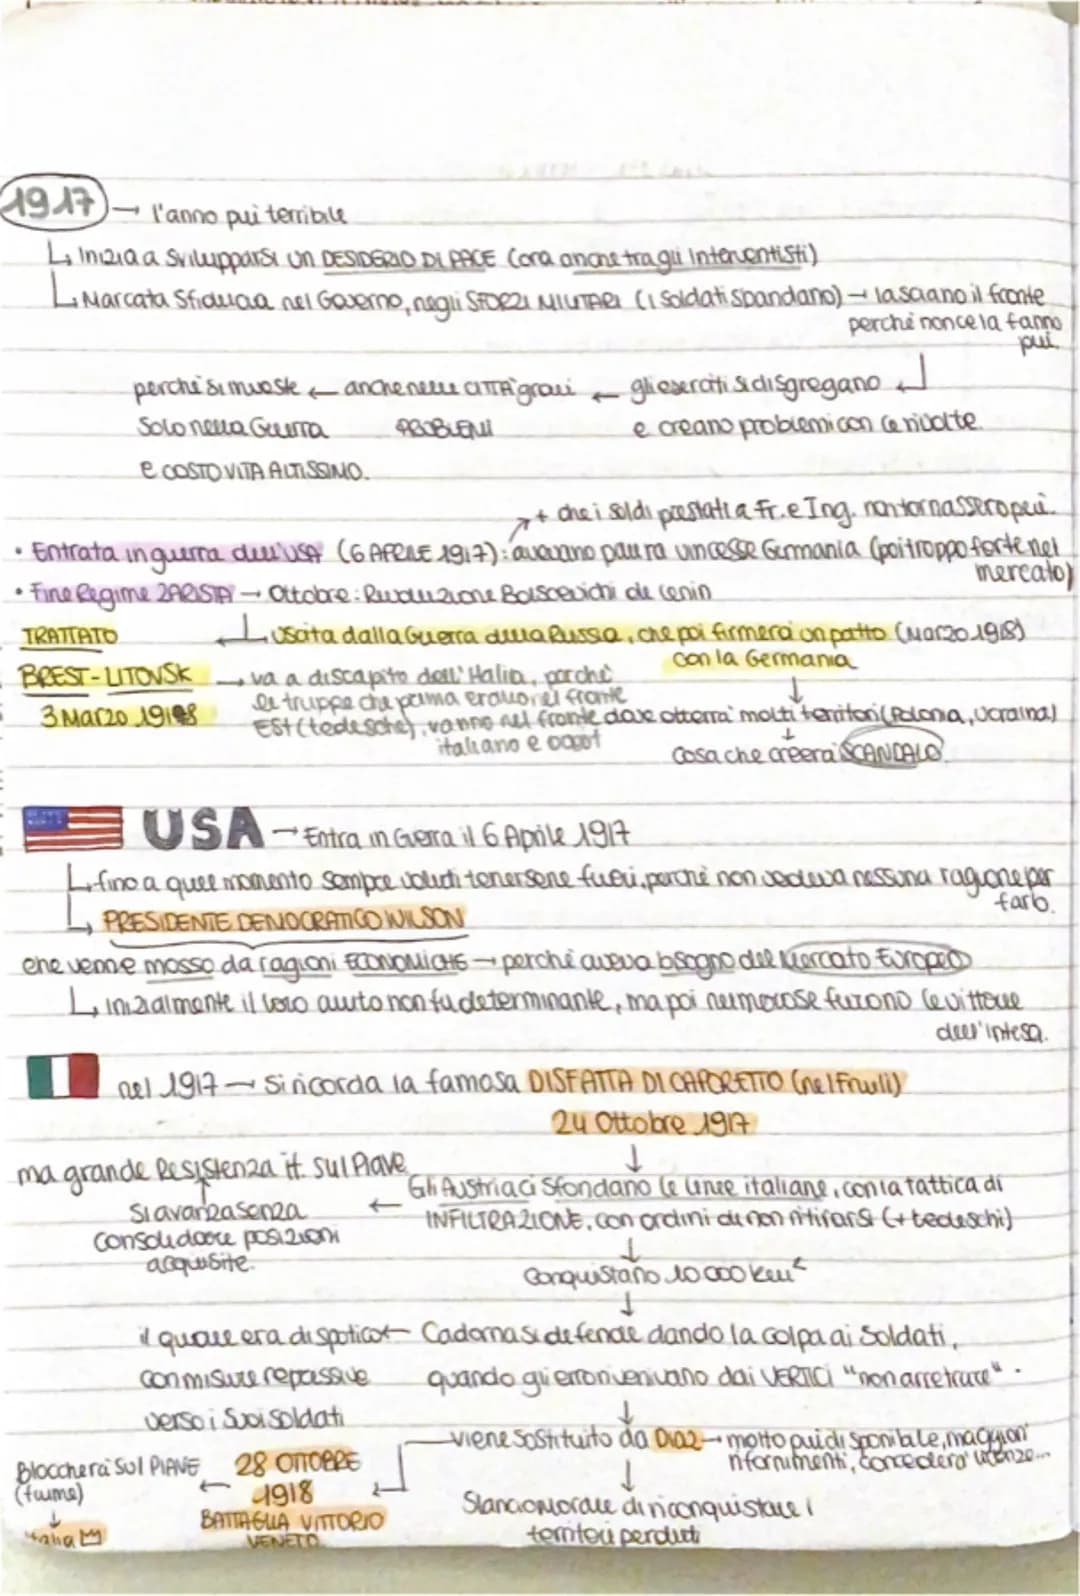 1917 → l'anno pui terribile
↳ Inizia a svilupparsi un DESIDERIO DI PACE (ora anche tra gli Interventisti)
↳ Marcata Sfiducia nel Governo, negli SFORZI MILITARI (i soldati sbandano) → lasciano il fronte
perché non ce la fanno
pui.
perché si investe ← anche nelle CITTÀ gravi ← gli eserciti si disgregano
solo nella Guerra PROBLEMI e creano problemi con le rivolte.
e COSTO VITA ALTISSIMO.
+ che i soldi prestati a Fr. e Ing. non tornassero pui.
• Entrata in guerra dell'USA (6 APRILE 1917): avevano paura vincesse Germania (poi troppo forte nel
mercato)
• Fine Regime ZARISTA → Ottobre: Rivoluzione Bolscevichi di Lenin
TRATTATO ↳ Uscita dalla Guerra della Russia, che poi firmerà un patto (Marzo 1918)
con la Germania
BREST-LITOVSK → va a discapito dell'Italia, perché
le truppe che prima erano nel fronte
3 Marzo 1918 EST (tedesche), vanno nel fronte dove otterrà molti territori (Polonia, Ucraina)
italiano e occ
cosa che creerà SCANDALO
USA → Entra in Guerra il 6 Aprile 1917
↳ fino a quel momento sempre voluti tenersene fuori, perché non vedeva nessuna ragione per
farlo.
↳ PRESIDENTE DEMOCRATICO WILSON
che venne mosso da ragioni ECONOMICHE → perché aveva bisogno del Mercato Europeo
↳ Inizialmente il loro aiuto non fu determinante, ma poi numerose furono le vittorie
dell'intesa.
nel 1917 → Si ricorda la famosa DISFATTA DI CAPORETTO (nel Friuli)
24 Ottobre 1917
ma grande Resistenza it. sul Piave
Gli Austriaci sfondano le linee italiane, con la tattica di
Si avanza senza ← INFILTRAZIONE, con ordini di non ritirarsi (+ tedeschi)
consolidare posizioni
acquisite.
Conquistano 10 000 km²
il quale era dispotico ← Cadorna si difende dando la colpa ai Soldati,
con misure repassive quando gli errori venivano dai VERTICI "non arretrare".
verso i suoi soldati
viene sostituito da DIAZ → molto pui disponibile, maggiori
rifornimenti, concederà licenze...
Bloccherà sul PIAVE ← 28 OTTOBRE
(fiume) 1918
Slancio Morale di riconquistare i
BATTAGLIA VITTORIO territori perduti
Italia VENETO